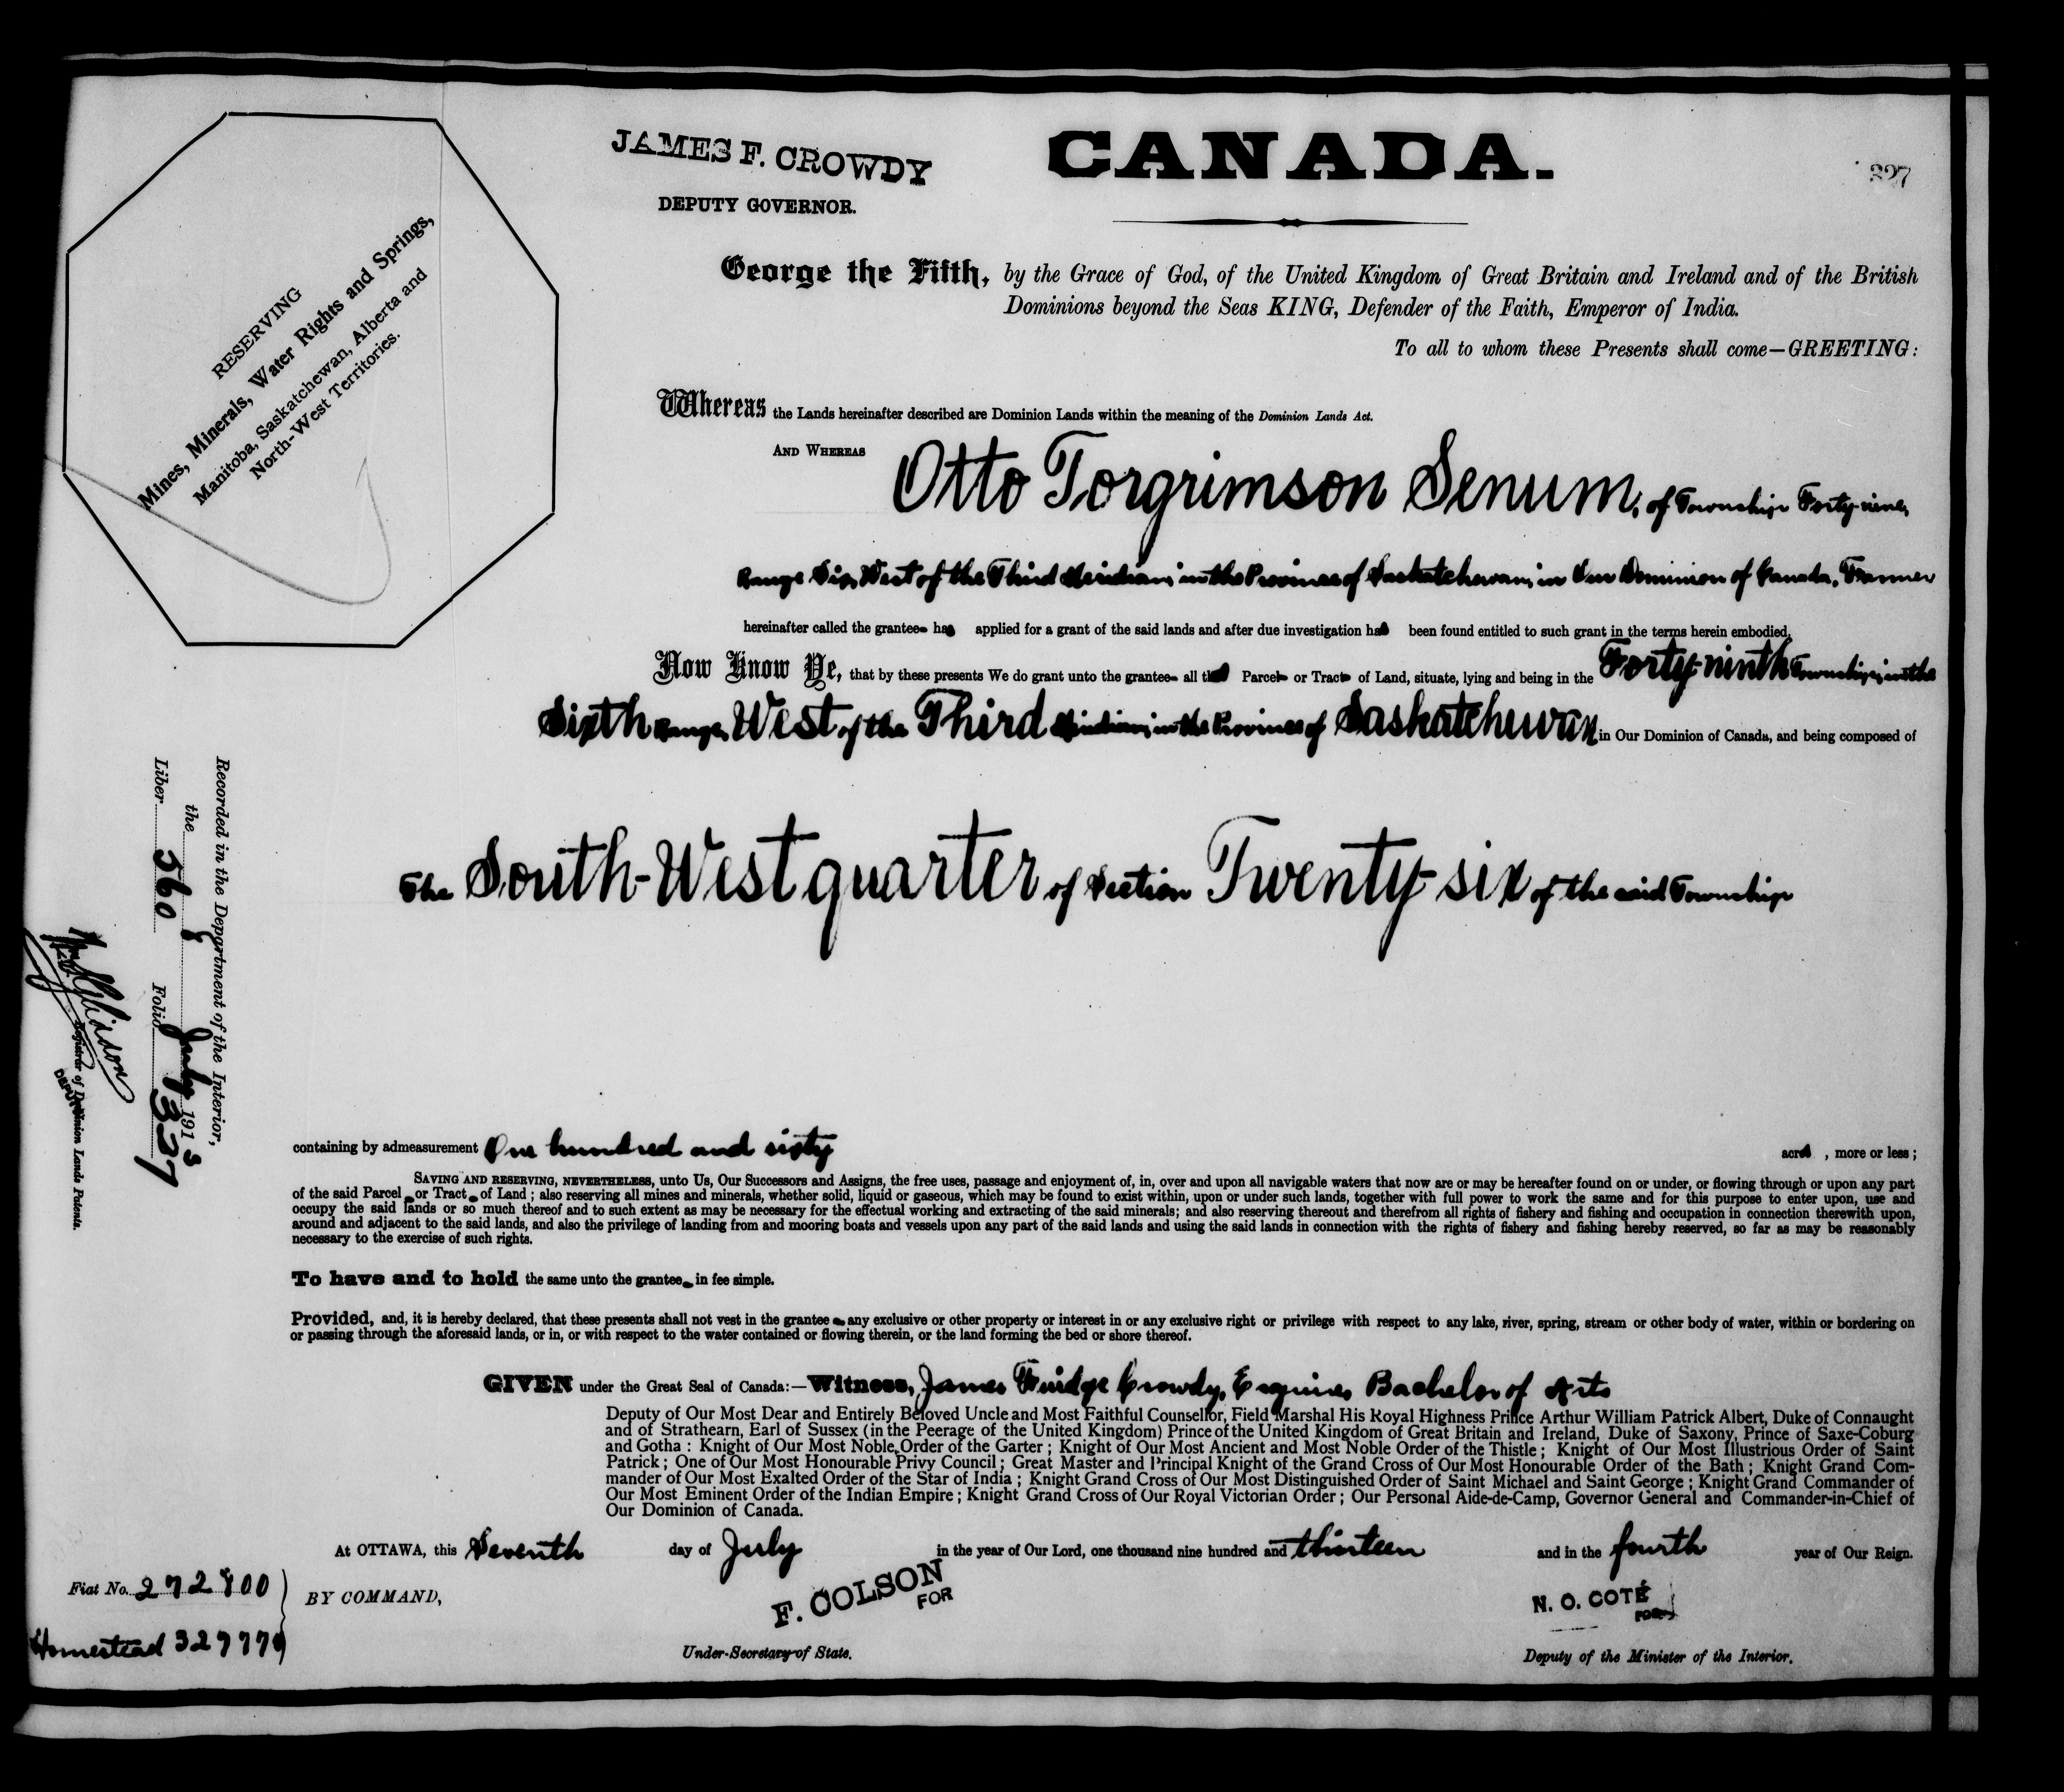 JAMES F. CROWDY
DEPUTY GOVERNOR.
CANADA.
327
RESERVING
Mines, Minerals, Water Rights and Springs,
Manitoba, Saskatchewan, Alberta and
North-West Territories.
George the Fifth, by the Grace of God, of the United Kingdom of Great Britain and Ireland and of the British
Dominions beyond the Seas KING, Defender of the Faith, Emperor of India.
To all to whom these Presents shall come—GREETING:
Whereas the Lands hereinafter described are Dominion Lands within the meaning of the Dominion Lands Act.
AND WHEREAS Otto Torgrimson Senum, of Township Forty-nine,
Range Six, West of the Third Meridian, in the Province of Saskatchewan, in Our Dominion of Canada, Farmer
hereinafter called the grantee has applied for a grant of the said lands and after due investigation has been found entitled to such grant in the terms herein embodied.
Now Know Ye, that by these presents We do grant unto the grantee all that Parcel or Tract of Land, situate, lying and being in the Forty-ninth Township, in the
Sixth Range, West of the Third Meridian, in the Province of Saskatchewan in Our Dominion of Canada, and being composed of
The South-West quarter of Section Twenty-six of the said Township
Recorded in the Department of the Interior,
the 8 July 1913
Liber 560 Folio 327
Registrar of Dominion Lands Patents.
DEPUTY
containing by admeasurement One hundred and sixty acres, more or less;
SAVING AND RESERVING, NEVERTHELESS, unto Us, Our Successors and Assigns, the free uses, passage and enjoyment of, in, over and upon all navigable waters that now are or may be hereafter found on or under, or flowing through or upon any part
of the said Parcel or Tract of Land; also reserving all mines and minerals, whether solid, liquid or gaseous, which may be found to exist within, upon or under such lands, together with full power to work the same and for this purpose to enter upon, use and
occupy the said lands or so much thereof and to such extent as may be necessary for the effectual working and extracting of the said minerals; and also reserving thereout and therefrom all rights of fishery and fishing and occupation in connection therewith upon,
around and adjacent to the said lands, and also the privilege of landing from and mooring boats and vessels upon any part of the said lands and using the said lands in connection with the rights of fishery and fishing hereby reserved, so far as may be reasonably
necessary to the exercise of such rights.
To have and to hold the same unto the grantee in fee simple.
Provided, and, it is hereby declared, that these presents shall not vest in the grantee any exclusive or other property or interest in or any exclusive right or privilege with respect to any lake, river, spring, stream or other body of water, within or bordering on
or passing through the aforesaid lands, or in, or with respect to the water contained or flowing therein, or the land forming the bed or shore thereof.
GIVEN under the Great Seal of Canada:—Witness, James Fuidge Crowdy, Esquire, Bachelor of Arts
Deputy of Our Most Dear and Entirely Beloved Uncle and Most Faithful Counsellor, Field Marshal His Royal Highness Prince Arthur William Patrick Albert, Duke of Connaught
and of Strathearn, Earl of Sussex (in the Peerage of the United Kingdom) Prince of the United Kingdom of Great Britain and Ireland, Duke of Saxony, Prince of Saxe-Coburg
and Gotha: Knight of Our Most Noble Order of the Garter; Knight of Our Most Ancient and Most Noble Order of the Thistle; Knight of Our Most Illustrious Order of Saint
Patrick; One of Our Most Honourable Privy Council; Great Master and Principal Knight of the Grand Cross of Our Most Honourable Order of the Bath; Knight Grand Com-
mander of Our Most Exalted Order of the Star of India; Knight Grand Cross of Our Most Distinguished Order of Saint Michael and Saint George; Knight Grand Commander of
Our Most Eminent Order of the Indian Empire; Knight Grand Cross of Our Royal Victorian Order; Our Personal Aide-de-Camp, Governor General and Commander-in-Chief of
Our Dominion of Canada.
At OTTAWA, this Seventh day of July in the year of Our Lord, one thousand nine hundred and thirteen and in the fourth year of Our Reign.
Fiat No. 272800
BY COMMAND,
F. COLSON
FOR
N. O. COTÉ
FOR
Homestead
Under-Secretary of State.
Deputy of the Minister of the Interior.